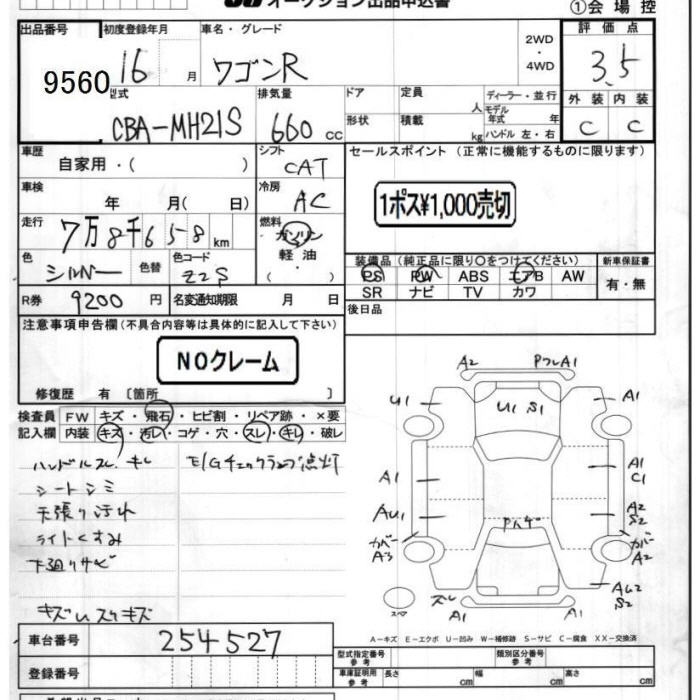 オークション出品申込書
①会場控
出品番号 初度登録年月 車名・グレード 2WD・4WD 評価点
9560 16 月 ワゴンR 3.5
型式 排気量 ドア 定員 人 ディーラー・並行 外装 内装
CBA-MH21S 660 cc 形状 積載 kg モデル年式 年 ハンドル 左・右 C C
車歴 自家用・( ) シフト CAT セールスポイント (正常に機能するものに限ります)
車検 年 月( 日) 冷房 AC
1ポス¥1,000売切
走行 7万8千658km 燃料 ガソリン 軽油 ( )
色 シルバー 色替 色コード Z2S
装備品 (純正品に限り○をつけてください) 新車保証書
PS PW ABS エアB AW 有・無
SR ナビ TV カワ
R券 9200円 名変通知期限 月 日 後日品
注意事項申告欄(不具合内容等は具体的に記入して下さい)
NOクレーム
修復歴 有 〔箇所 〕
検査員記入欄 FW キズ・飛石・ヒビ割・リペア跡・×要
内装 キズ・汚レ・コゲ・穴・スレ・キレ・破レ
ハンドルスレ、キレ E/Gチェックランプ点灯
シートシミ
天張り汚れ
ライトくすみ
下廻りサビ
キズUスリキズ
A2 PフレA1
U1 U1 S1 A1
A1 A1 C1
AU1 A2 S2
Pハゲ
カバーA3 カバーA2
スペア ズレ A1 A1 AU2 S2
A-キズ E-エクボ U-凹み W-補修跡 S-サビ C-腐食 XX-交換済
車台番号 254527
型式指定番号 参考 類別区分番号 参考
登録番号 車庫証明用 参考 長さ cm 幅 cm 高さ cm